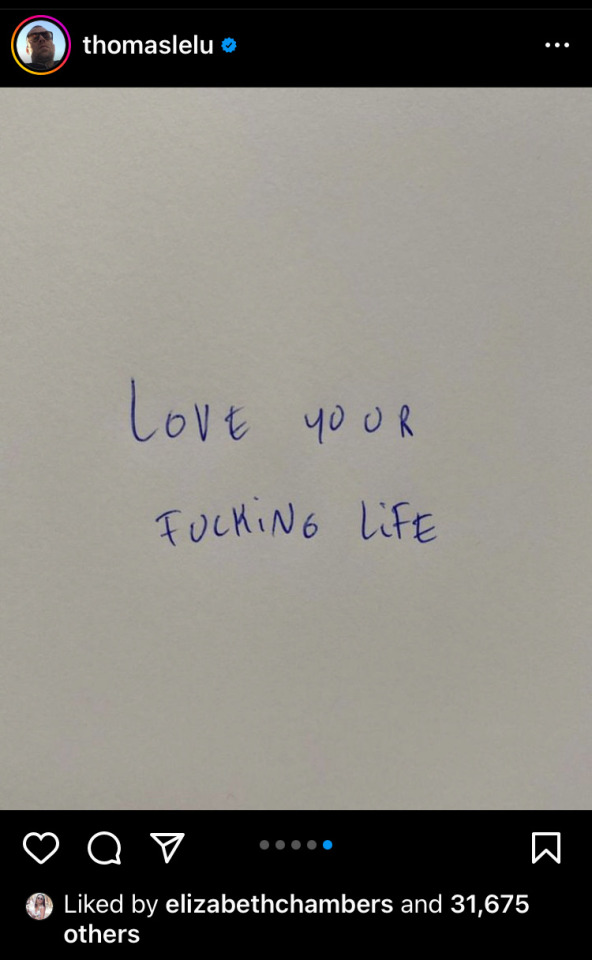 thomaslelu
LOVE YOUR
FUCKiNG LiFE
Liked by elizabethchambers and 31,675
others